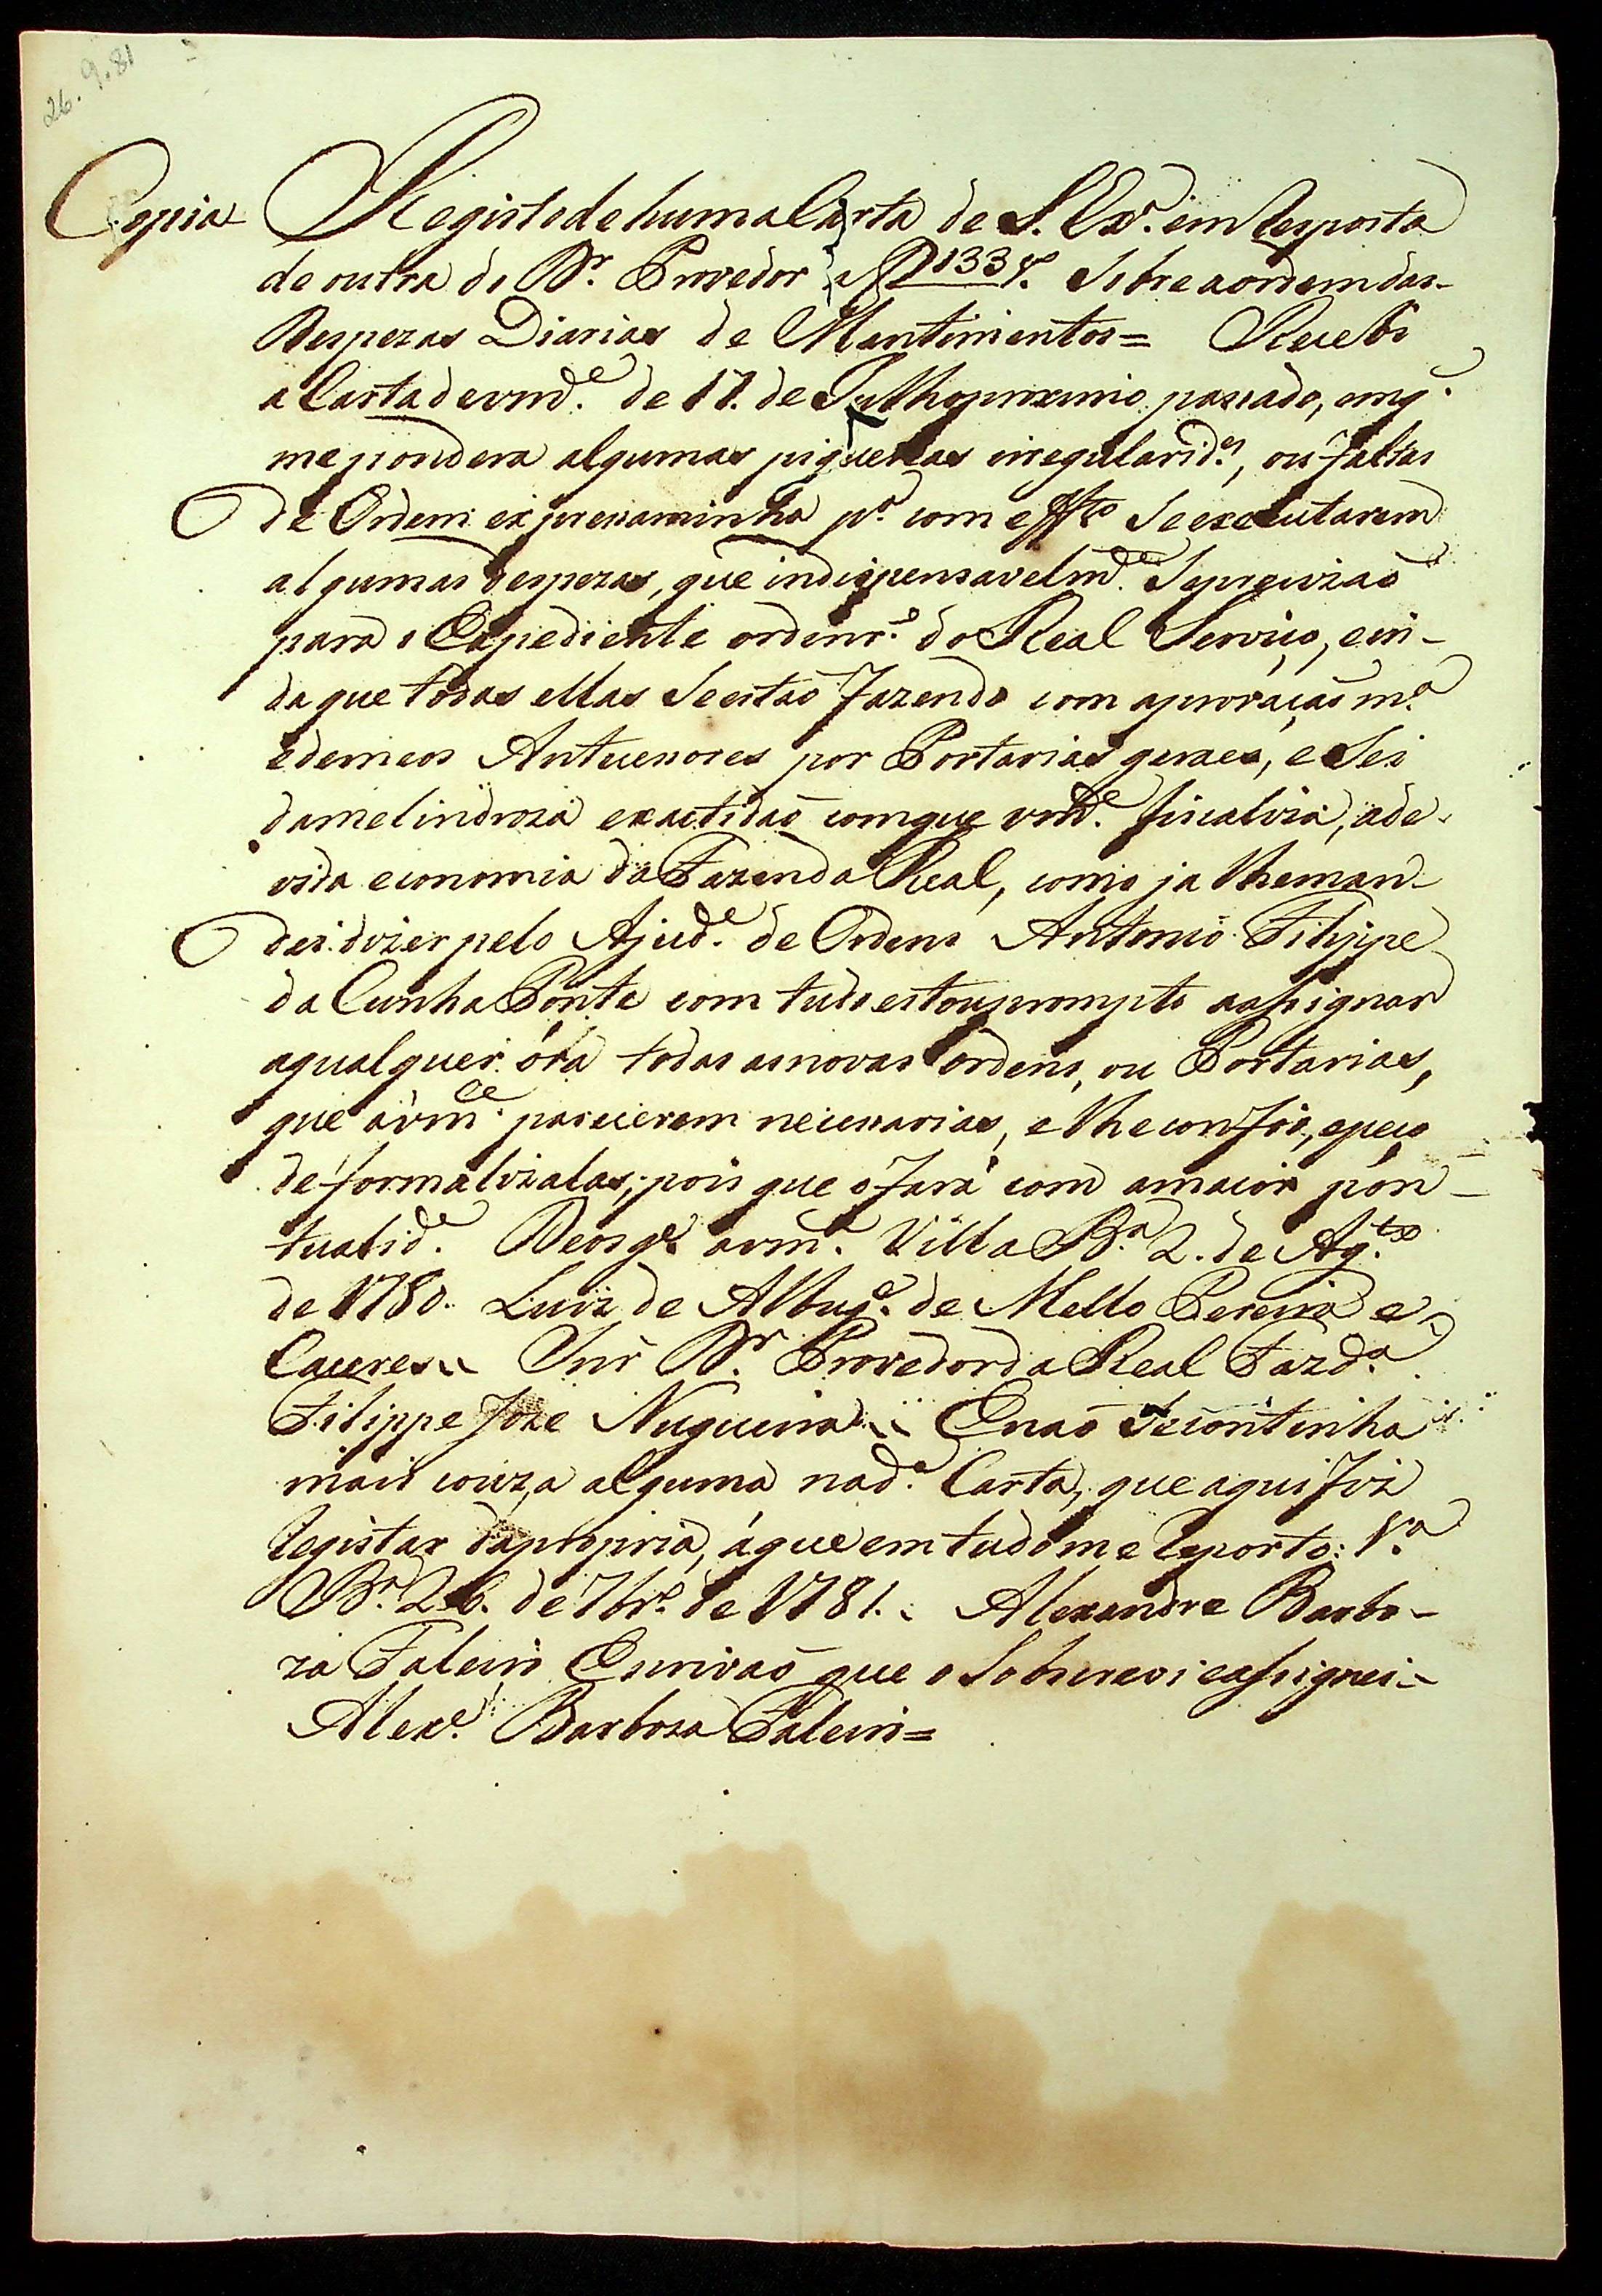 26.9.81
Copia Registo de huma Carta de S. Ex.ª em resposta
de outra do D.r Provedor a f 133 v. Sobre a ordem das
Despezas Diarias de Mantimentos = Recebi
a Carta de vm.ce de 17. de Julho proximo passado, em q̃.
me pondera algumas piquenas irregularid.es, ou faltas
de Ordem expressa minha p.ª com effto Se executarem
algumas despezas, que indispensavelm.te Se precizaõ
para o Expediente ordinr.o do Real Serviço, ein-
da que todas ellas Se estaõ fazendo com aprovaçaõ m.ª
e de meos Antecessores por Portarias geraes, e Sei
da melindroza exactidaõ com que vm.ce fiscaliza, a de-
vida economia da Fazenda Real, como ja lhe man-
dei dizer pelo Ajud.e de Ordens Antonio Filippe
da Cunha Ponte com tudo estou prompto a assignar
a qualquer óra todas as novas Ordens, ou Portarias,
que a vm.ce parecerem necessarias, e lhe confio, e peço
de formalizalas; pois que o fará com a maior pon-
tualid.e Deos g.e a vm.ce Villa B.ª 2. de Ag.to
de 1780. Luiz de Albuq.e de Mello Pereira e
Caceres Snr̃ D.r Provedor da Real Fazd.ª
Filippe Joze Nugueira E naõ Se continha
mais couza alguma na d.ª Carta, que aqui fiz
registar da propria, á que em tudo me reporto: V.ª
B.ª 26. de 7br.o de 1781. Alexandre Barbo-
za Faleiri Escrivaõ que o Sobscrevi e assignei
Alex.e Barboza Faleiri =